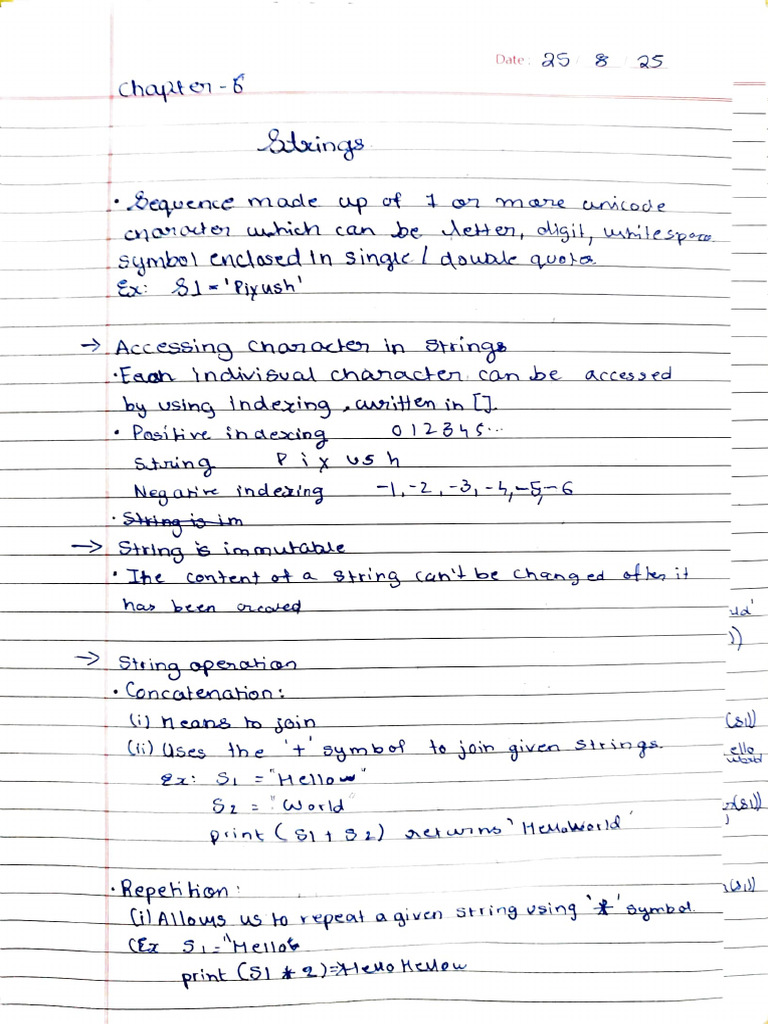 Date: 25 / 8 / 25
Chapter - 6
Strings
• Sequence made up of 1 or more unicode
character which can be letter, digit, whitespace
symbol enclosed in single / double quote
Ex: S1 = 'Piyush'
→ Accessing character in strings
• Each indivisual character can be accessed
by using indexing, written in [].
• Positive indexing 0 1 2 3 4 5 ...
String P i y u s h
Negative indexing -1, -2, -3, -4, -5, -6
• String is im
→ String is immutable
• The content of a string can't be changed after it
has been created
→ String operation
• Concatenation:
(i) Means to join
(ii) Uses the '+' symbol to join given strings.
Ex: S1 = "Hellow"
S2 = "World"
print (S1 + S2) returns 'HelloWorld'
• Repetition:
(i) Allows us to repeat a given string using '*' symbol.
(Ex S1 = "Hello
print (S1 * 2) => Hello Hellow
(S1)
ello
world
(S1))
(S1)